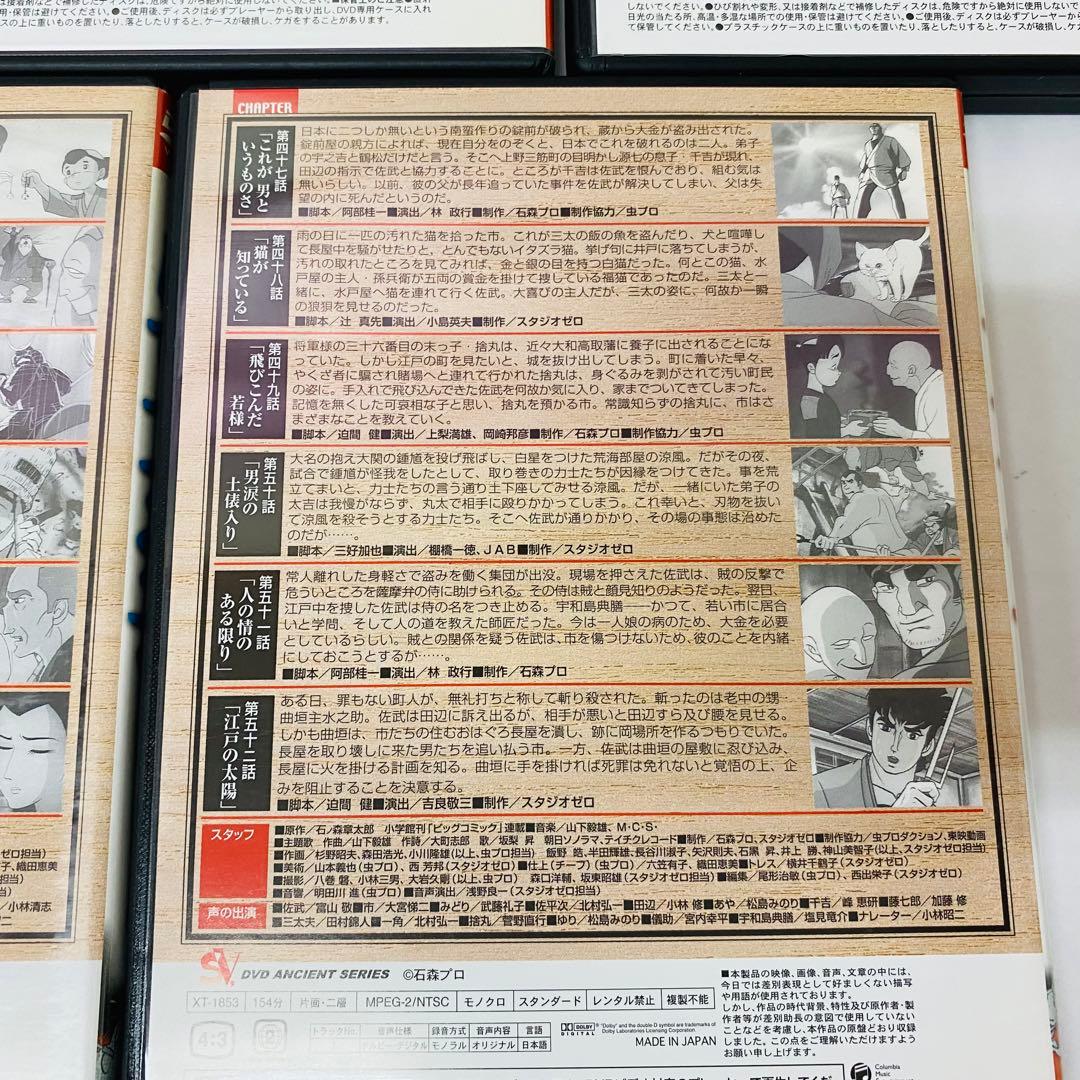 しないでください。●ひび割れや変形、又は接着剤などで補修したディスクは、危険ですから絶対に使用しないで
日光の当たる所、高温・多湿な場所での使用・保管は避けてください。●ご使用後、ディスクは必ずプレーヤーから
て保管してください。●プラスチックケースの上に重いものを置いたり、落としたりすると、ケースが破損し、ケガ
用・保管は避けてください。●ご使用後、ディスクは必ずプレーヤーから取り出し、DVD専用ケースに入れ
スの上に重いものを置いたり、落としたりすると、ケースが破損し、ケガをすることがあります。
CHAPTER
第四十七話
「これが男と
いうものさ」
日本に二つしか無いという南蛮作りの錠前が破られ、蔵から大金が盗み出された。
錠前屋の親方によれば、現在自分をのぞくと、日本でこれを破れるのは二人。弟子
の宇之吉と鶴松だけだと言う。そこへ上野三筋町の目明かし源七の息子・千吉が現れ、
田辺の指示で佐武と協力することに。ところが千吉は佐武を恨んでおり、組む気は
無いらしい。以前、彼の父が長年追っていた事件を佐武が解決してしまい、父は失
望の内に死んだというのだ。
■脚本／阿部桂一■演出／林 政行■制作／石森プロ■制作協力／虫プロ
第四十八話
「猫が
知っている」
雨の日に一匹の汚れた猫を拾った市。これが三太の飯の魚を盗んだり、犬と喧嘩し
て長屋中を騒がせたりと、とんでもないイタズラ猫。挙げ句に井戸に落ちてしまうが、
汚れの取れたところを見てみれば、金と銀の目を持つ白猫だった。何とこの猫、水
戸屋の主人・孫兵衛が五両の賞金を掛けて捜している福猫であったのだ。三太と一
緒に、水戸屋へ猫を連れて行く佐武。大喜びの主人だが、三太の姿に、何故か一瞬
の狼狽を見せるのだった。
■脚本／辻 真先■演出／小島英夫■制作／スタジオゼロ
第四十九話
「飛びこんだ
若様」
将軍様の三十六番目の末っ子・捨丸は、近々大和高取藩に養子に出されることにな
っていた。しかし江戸の町を見たいと、城を抜け出してしまう。町に着いた早々、
やくざ者に騙され賭場へと連れて行かれた捨丸は、身ぐるみを剥がされて汚い町民
の姿に。手入れで飛び込んできた佐武を何故か気に入り、家までついてきてしまった。
記憶を無くした可哀相な子と思い、捨丸を預かる市。常識知らずの捨丸に、市はさ
まざまなことを教えていく。
■脚本／迫間 健■演出／上梨満雄、岡崎邦彦■制作／石森プロ■制作協力／虫プロ
第五十話
「男涙の
土俵入り」
大名の抱え大関の鍾馗を投げ飛ばし、白星をつけた荒海部屋の涼風。だがその夜、
試合で鍾馗が怪我をしたとして、取り巻きの力士たちが因縁をつけてきた。事を荒
立てまいと、力士たちの言う通り土下座してみせる涼風。だが、一緒にいた弟子の
太吉は我慢がならず、丸太で相手に殴りかかってしまう。これ幸いと、刃物を抜い
て涼風を殺そうとする力士たち。そこへ佐武が通りかかり、その場の事態は治めた
のだが……。
■脚本／三好加也■演出／棚橋一徳、JAB■制作／スタジオゼロ
第五十一話
「人の情の
ある限り」
常人離れした身軽さで盗みを働く集団が出没。現場を押さえた佐武は、賊の反撃で
危ういところを薩摩弁の侍に助けられる。その侍は賊と顔見知りのようだった。翌日、
江戸中を捜した佐武は侍の名をつき止める。宇和島典膳──かつて、若い市に居合
いと学問、そして人の道を教えた師匠だった。今は一人娘の病のため、大金を必要
としているらしい。賊との関係を疑う佐武は、市を傷つけないため、彼のことを内緒
にしておこうとするが……。
■脚本／阿部桂一■演出／林 政行■制作／石森プロ
第五十二話
「江戸の太陽」
ある日、罪もない町人が、無礼打ちと称して斬り殺された。斬ったのは老中の甥・
曲垣主水之助。佐武は田辺に訴え出るが、相手が悪いと田辺すら及び腰を見せる。
しかも曲垣は、市たちの住むおはぐろ長屋を潰し、跡に岡場所を作るつもりでいた。
長屋を取り壊しに来た男たちを追い払う市。一方、佐武は曲垣の屋敷に忍び込み、
長屋に火を掛ける計画を知る。曲垣に手を掛ければ死罪は免れないと覚悟の上、企
みを阻止することを決意する。
■脚本／迫間 健■演出／吉良敬三■制作／スタジオゼロ
スタッフ
■原作／石ノ森章太郎 小学館刊「ビッグコミック」連載■音楽／山下毅雄、M・C・S・
■主題歌 作曲／山下毅雄 作詩／大町志郎 歌／坂梨 昇 朝日ソノラマ、テイチクレコード■制作／石森プロ、スタジオゼロ■制作協力／虫プロダクション、東映動画
■作画／杉野昭夫、森田浩光、小川隆雄(以上、虫プロ担当) 飯野 皓、半田輝雄、長谷川淑子、矢沢則夫、石黒 昇、井上 勝、神山美智子(以上、スタジオゼロ担当)
■美術／山本義也(虫プロ)、西 芳邦(スタジオゼロ)■仕上(チーフ)(虫プロ)／六笠有子、織田恵美■トレス／横井千鶴子(スタジオゼロ)
■撮影／八巻 磐、小林三男、大岩久剛(以上、虫プロ) 森口洋輔、坂東昭雄(スタジオゼロ担当)■編集／尾形治敏(虫プロ)、西出栄子(スタジオゼロ)
■音響／明田川 進(虫プロ)■音声演出／浅野良一(スタジオゼロ)
声の出演
■佐武／富山 敬■市／大宮悌二■みどり／武藤礼子■佐平次／北村弘一■田辺／小林 修■あや／松島みのり■千吉／峰 恵研■藤七郎／加藤 修
■三太夫／田村錦人■一角／北村弘一■捨丸／菅野直行■ゆり／松島みのり■儀助／宮内幸平■宇和島典膳／塩見竜介■ナレーター／小林昭二
SV DVD ANCIENT SERIES ©石森プロ
XT-1853 154分 片面・二層 MPEG-2/NTSC モノクロ スタンダード レンタル禁止 複製不能
4:3 2 トラックNo. 音声仕様 録音方式 音声内容 言語
ドルビーデジタル モノラル オリジナル 日本語
DOLBY DIGITAL
"Dolby" and the double-D symbol are trademarks of
Dolby Laboratories Licensing Corporation.
MADE IN JAPAN
■本製品の映像、画像、音声、文章の中には、
今日では差別表現として好ましくない描写
や用語が使用されております。
しかし、作品の時代背景、特性及び原作者・製
作者等が差別助長の意図で使用していない
ことなどを考慮し、本作品の原盤どおり収録
しました。この点をご理解いただけますよう
お願い申し上げます。
Columbia
Music
ゼロ担当)
子、織田恵美
当)
／小林清志